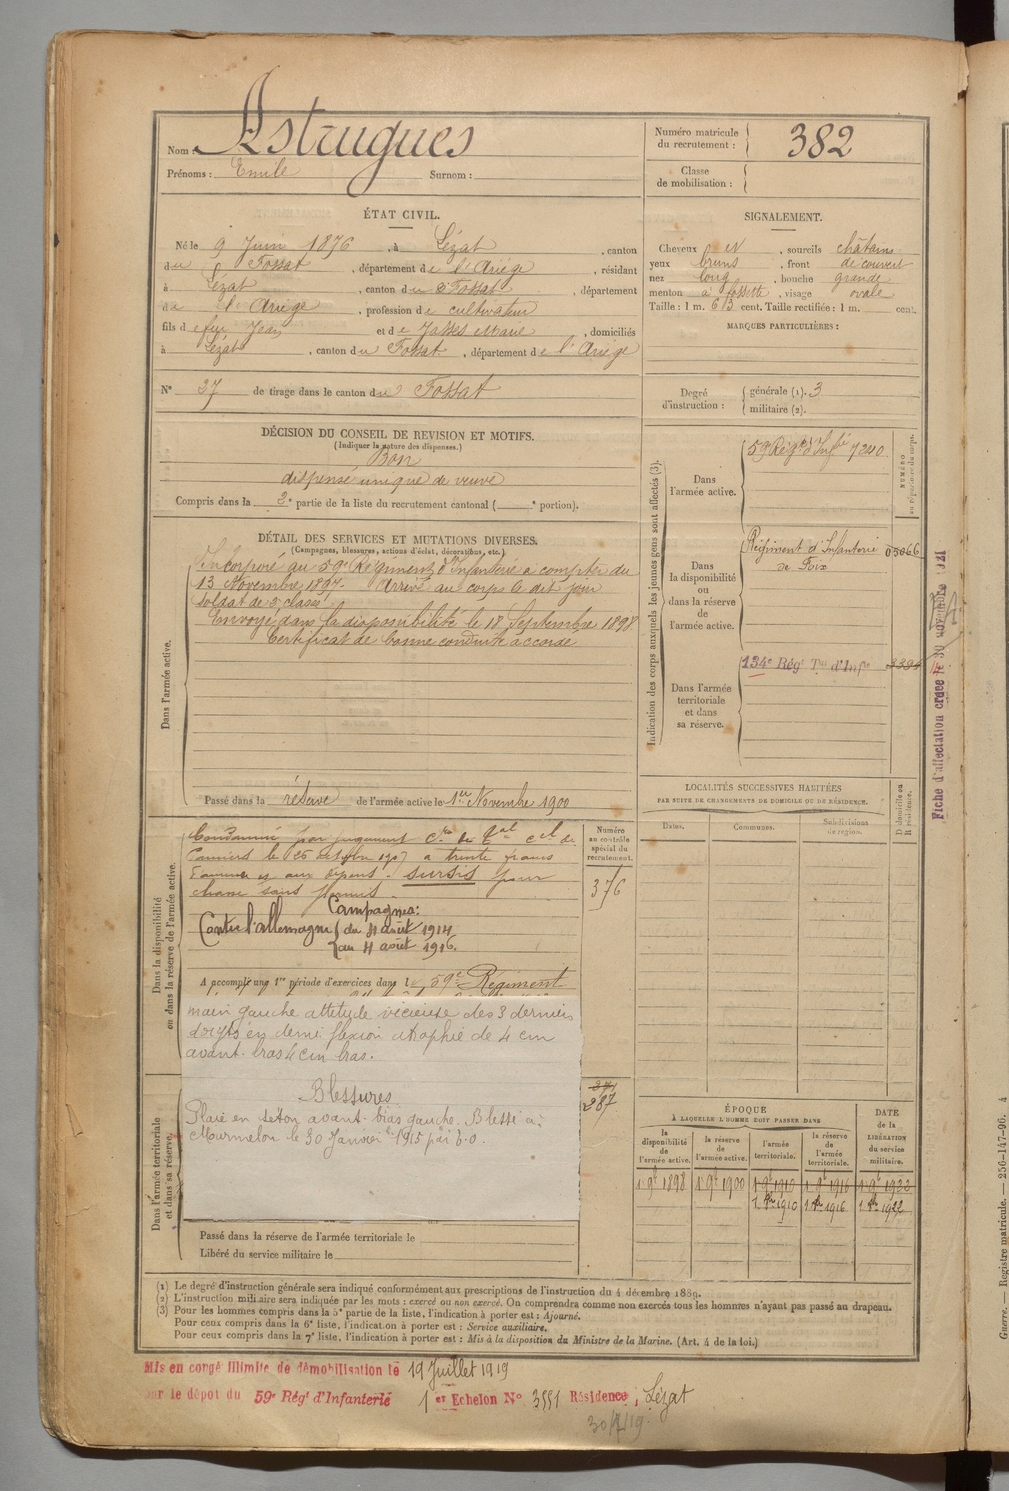 Nom : Astrugues
Prénoms : Emile Surnom :
Numéro matricule du recrutement : 382
Classe de mobilisation :
ÉTAT CIVIL.
Né le 9 Juin 1876, à Lézat, canton
du Fossat, département de l'Ariège, résidant
à Lézat, canton du Fossat, département
de l'Ariège, profession de cultivateur
fils de feu Jean et de Jasses Marie, domiciliés
à Lézat, canton du Fossat, département de l'Ariège
N° 27 de tirage dans le canton du Fossat
SIGNALEMENT.
Cheveux et, sourcils châtains
yeux bruns, front découvert
nez long, bouche grande
menton à fossette, visage ovale
Taille : 1 m. 613 cent. Taille rectifiée : 1 m. cent.
MARQUES PARTICULIÈRES :
Degré d'instruction : générale (1). 3
militaire (2).
DÉCISION DU CONSEIL DE REVISION ET MOTIFS.
(Indiquer la nature des dispenses.)
Bon
dispensé unique de veuve
Compris dans la 2e partie de la liste du recrutement cantonal ( e portion).
DÉTAIL DES SERVICES ET MUTATIONS DIVERSES.
(Campagnes, blessures, actions d'éclat, décorations, etc.)
Dans l'armée active.
Incorporé au 59e Régiment d'Infanterie à compter du
13 Novembre 1897. Arrivé au corps le dit jour
soldat de 2e classe.
Envoyé dans la disponibilité le 18 Septembre 1898
Certificat de bonne conduite accordé
Passé dans la réserve de l'armée active le 1er Novembre 1900
Indication des corps auxquels les jeunes gens sont affectés (3).
NUMÉRO au répertoire du corps.
Dans l'armée active.
59 Régt d'Infie 7240
Dans la disponibilité ou dans la réserve de l'armée active.
Régiment d'Infanterie de Foix 05066
Dans l'armée territoriale et dans sa réserve.
134e Régt Tal d'Infie
Fiche d'affectation créée le 30 novembre 1921
Dans la disponibilité ou dans la réserve de l'armée active.
Condamné par jugement
Pamiers le 26 1907 à trente francs
d'amende et aux dépens. sursis pour
chasse sans permis.
Campagnes :
Contre l'allemagne du 4 août 1914
au 4 août 1916.
A accompli une 1re période d'exercices dans le 59e Régiment
main gauche attitude vicieuse des 3 derniers
doigts en demi flexion atrophie de 4 cm
avant-bras 4 cm bras.
Blessures
Plaie en séton avant-bras gauche. Blessé à
Mourmelon le 30 Janvier 1915 par
Numéro au contrôle spécial du recrutement.
376
371
287
Dans l'armée territoriale et dans sa réserve.
Passé dans la réserve de l'armée territoriale le
Libéré du service militaire le
LOCALITÉS SUCCESSIVES HABITÉES
PAR SUITE DE CHANGEMENTS DE DOMICILE OU DE RÉSIDENCE.
Dates. Communes. Subdivisions de région. D. domicile ou R. résidence.
ÉPOQUE
À LAQUELLE L'HOMME DOIT PASSER DANS
DATE de la LIBÉRATION du service militaire.
la disponibilité de l'armée active. la réserve de l'armée active. l'armée territoriale. la réserve de l'armée territoriale.
1 9bre 1898 1 9bre 1900 1 9bre 1910 1 9bre 1916 1 9bre 1922
1 8bre 1910 1 8bre 1916 1 8bre 1922
(1) Le degré d'instruction générale sera indiqué conformément aux prescriptions de l'instruction du 4 décembre 1889.
(2) L'instruction militaire sera indiquée par les mots : exercé ou non exercé. On comprendra comme non exercés tous les hommes n'ayant pas passé au drapeau.
(3) Pour les hommes compris dans la 5e partie de la liste, l'indication à porter est : Ajourné.
Pour ceux compris dans la 6e liste, l'indication à porter est : Service auxiliaire.
Pour ceux compris dans la 7e liste, l'indication à porter est : Mis à la disposition du Ministre de la Marine. (Art. 4 de la loi.)
Mis en congé illimité de démobilisation le 19 Juillet 1919
par le dépôt du 59e Régt d'Infanterie 1er Echelon N° 3551 Résidence, Lézat
Guerre. — Registre matricule. — 256-147-96. 4